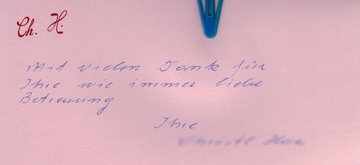 Ch. H.
Mit vielen Dank für
Ihre wie immer liebe
Betreuung
Ihre